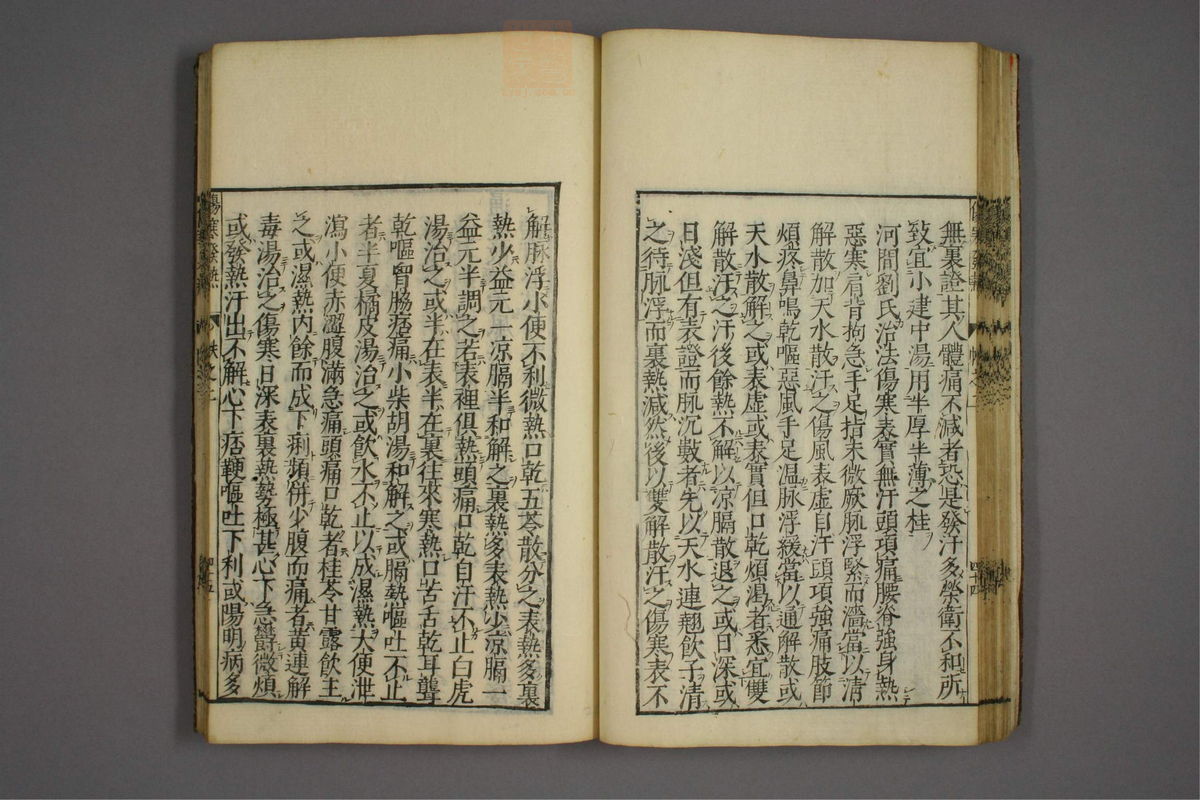 無裏證其人體痛不減者恐是發汗多榮衛不和所
致宜小建中湯用半厚半薄之桂
河間劉氏治法傷寒表實無汗頭項痛腰脊強身熱
惡寒肩背拘急手足指末微厥脉浮緊而濇當以清
解散加天水散汗之傷風表虛自汗頭項強痛肢節
煩疼鼻鳴乾嘔惡風手足温脉浮緩當以通解散或
天水散解之或表虛或表實但口乾煩渴者悉宜雙
解散汗之汗後餘熱不解以凉膈散退之或日深或
日淺但有表證而脉沉數者先以天水連翹飲子清
之待脉浮而裏熱減然後以雙解散汗之傷寒表不
解脉浮小便不利微熱口乾五苓散分之表熱多裏
熱少益元一凉膈半和解之裏熱多表熱少凉膈一
益元半調之若表裡俱熱頭痛口乾自汗不止白虎
湯治之或半在表半在裏往來寒熱口苦舌乾耳聾
乾嘔胷脇痞痛小柴胡湯和解之或膈熱嘔吐不止
者半夏橘皮湯治之或飲水不止以成濕熱大便泄
瀉小便赤澀腹滿急痛頭痛口乾者桂苓甘露飲主
之或濕熱内餘而成下痢頻併少腹而痛者黄連解
毒湯治之傷寒日深表裏熱勢極甚心下急欝微煩
或發熱汗出不解心下痞鞕嘔吐下利或陽明病多
傷寒發熱
帙之二
四十五
四十四